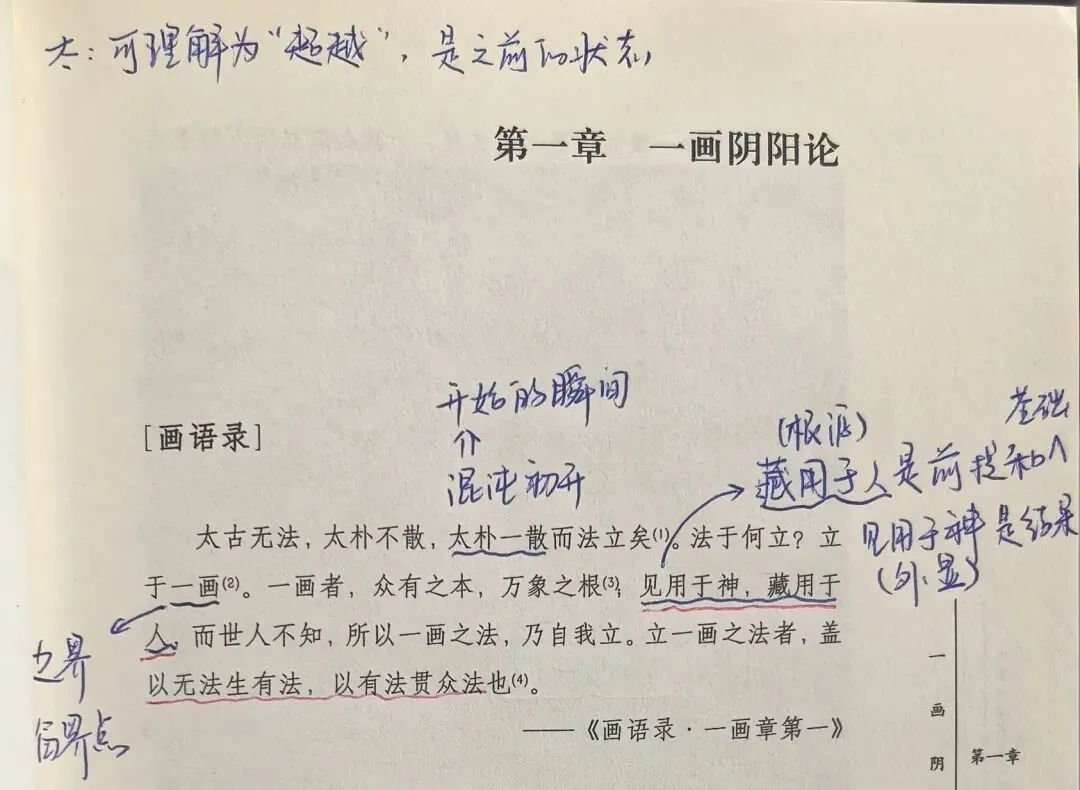 太：可理解为“超越”，是之前的状态
第一章 一画阴阳论
开始的瞬间
⇑
混沌初开
[画语录]
基础
(根源)
藏用于人是前提和∧
见用于神是结果
(外显)
太古无法，太朴不散，太朴一散而法立矣⑴。法于何立？立
于一画⑵。一画者，众有之本，万象之根⑶；见用于神，藏用于
人。而世人不知，所以一画之法，乃自我立。立一画之法者，盖
以无法生有法，以有法贯众法也⑷。
——《画语录·一画章第一》
边界
临界点
一
画
阴
第一章